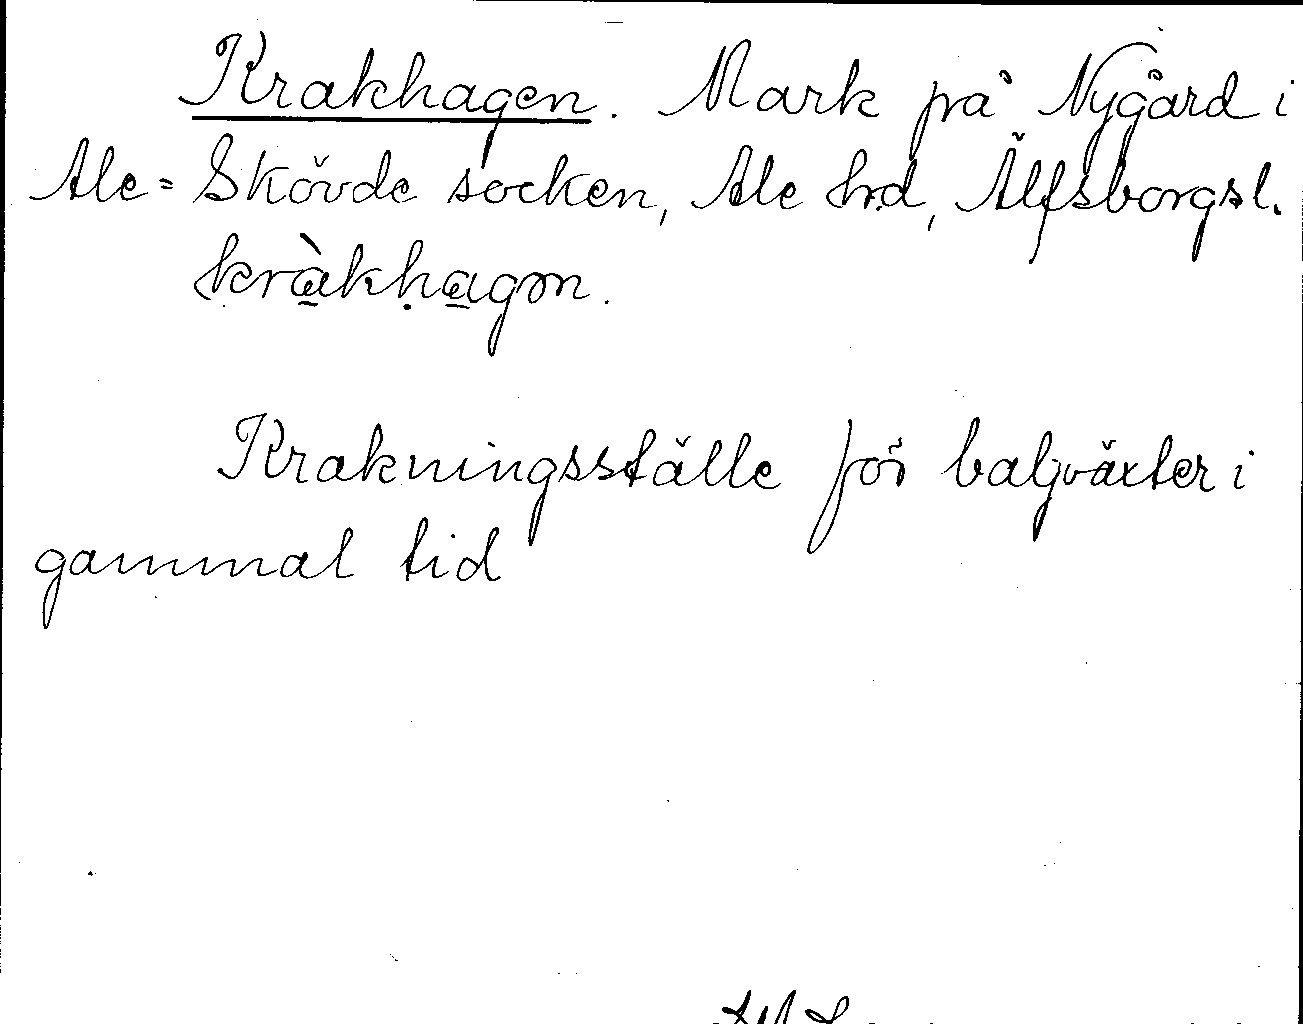 Krakhagen. Mark på Nygård i
Ale=Skövde socken, Ale hrd, Älfsborgsl.
kràkhagən.
Krakningsställe för baljväxter i
gammal tid